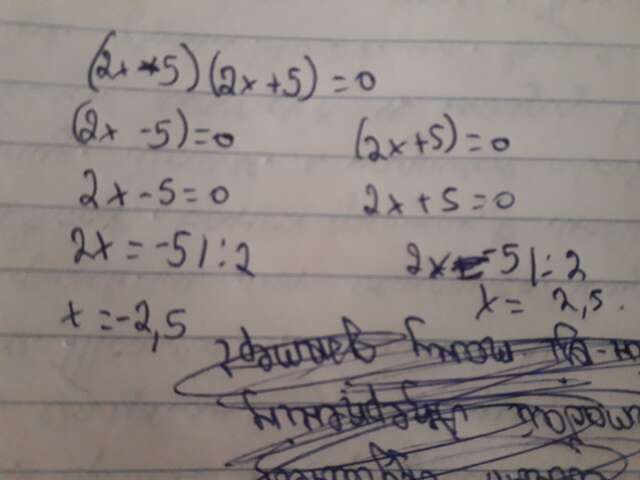 (2x - 5) (2x + 5) = 0
(2x - 5) = 0 (2x + 5) = 0
2x - 5 = 0 2x + 5 = 0
2x = -5 | : 2 2x = -5 | : 2
x = -2,5 x = 2,5.